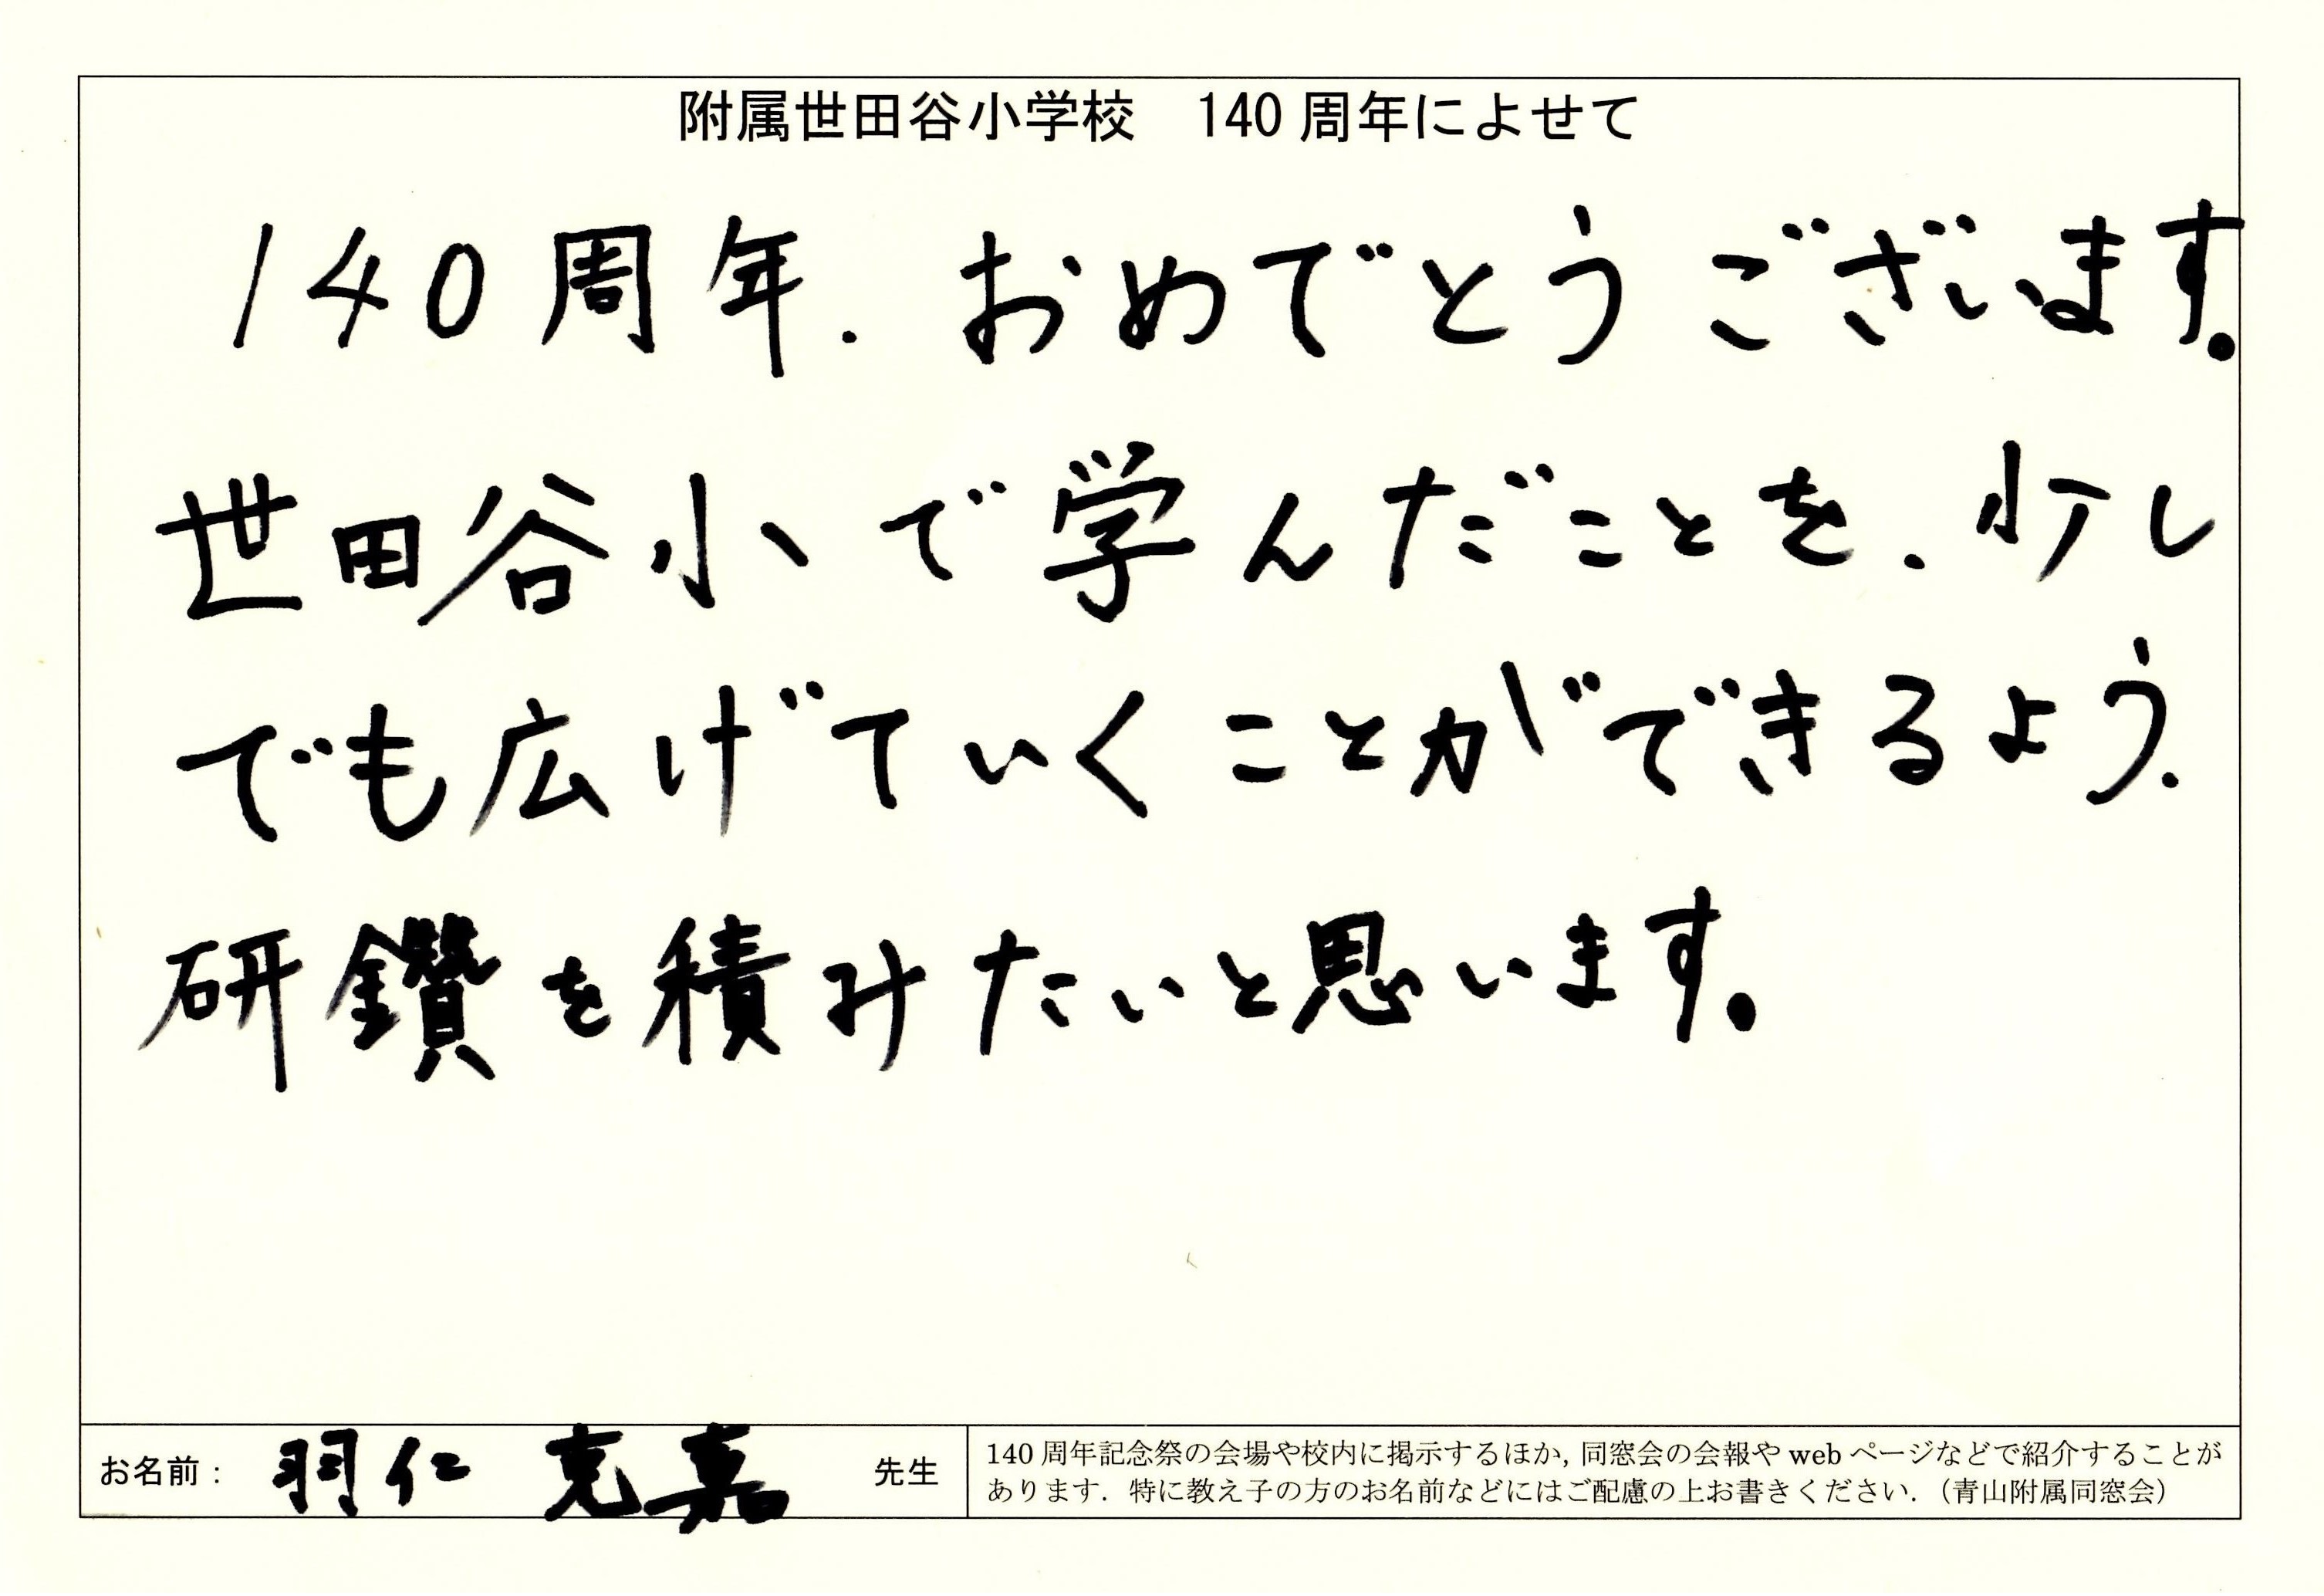 附属世田谷小学校　140 周年によせて
140周年、おめでとうございます。
世田谷小で学んだことを、少し
でも広げていくことができるよう、
研鑽を積みたいと思います。
お名前： 羽仁 克嘉 先生
140 周年記念祭の会場や校内に掲示するほか, 同窓会の会報や web ページなどで紹介することが
あります．特に教え子の方のお名前などにはご配慮の上お書きください．（青山附属同窓会）